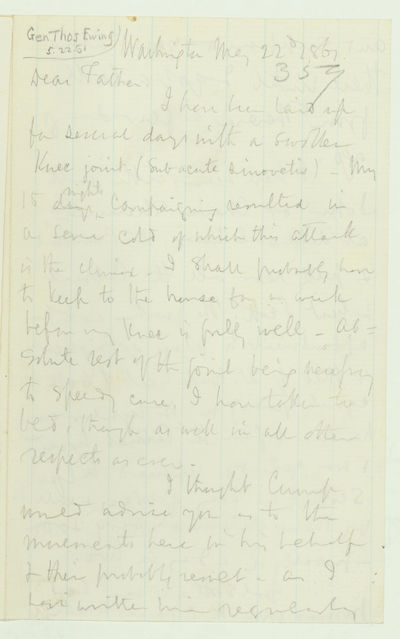 Gen Thos Ewing
5.22.61
Washington May 22d 1861
357
Dear Father.
I have been laid up
for several days with a swollen
Knee joint (Sub acute sinovetis) - My
15 nights Campaigning resulted in
a severe cold of which this attack
is the climax - I shall probably have
to keep to the house for a week
before my Knee is fully well - Ab=
solute rest of the joint being necessary
to speedy cure, I have taken to
bed, though as well in all other
respects as ever.
I thought Cump
would advise you as to the
movements here in his behalf
& their probable result - as I
have written him regularly